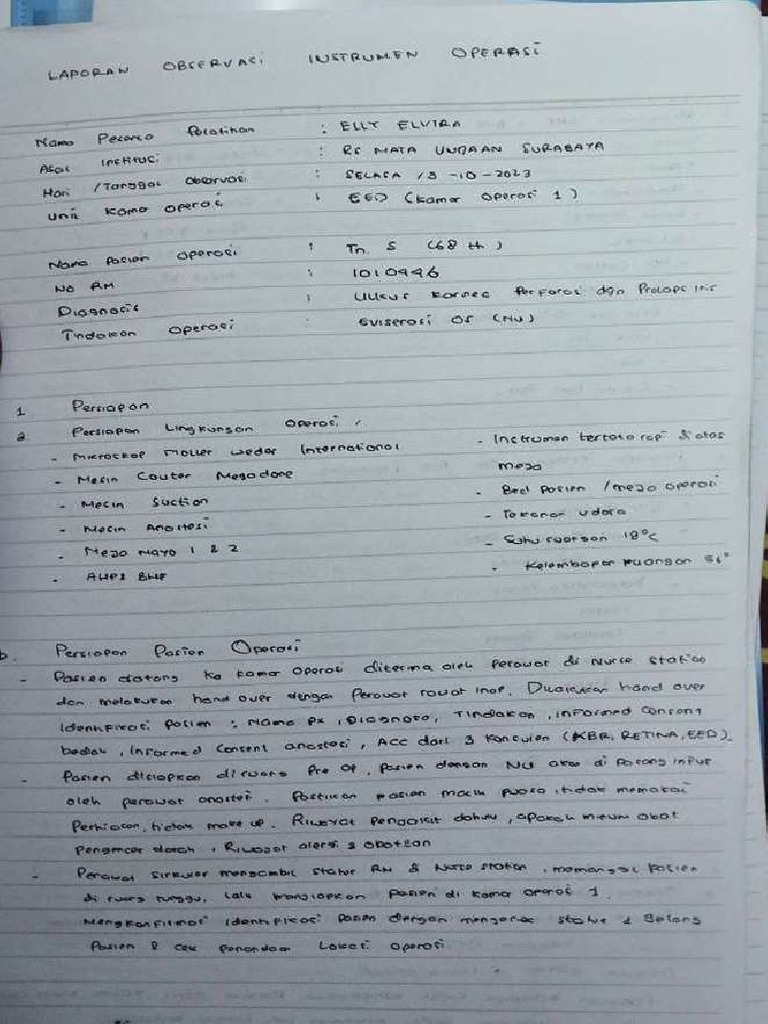 LAPORAN OBSERVASI INSTRUMEN OPERASI
Nama Peserta Pelatihan : ELLY ELVIRA
Asal Institusi : RS MATA UNDAAN SURABAYA
Hari / Tanggal Observasi : SELASA / 3 -10 - 2023
Unit Kamar Operasi : EED (Kamar Operasi 1)
Nama Pasien Operasi : Tn. S (68 th)
No RM : 1010996
Diagnosis : Ulkus Kornea Perforasi dgn Prolaps Iris
Tindakan Operasi : Eviserasi OS (NU)
1. Persiapan
a. Persiapan Lingkungan Operasi
- Microskop Moller wedel International
- Mesin Couter Megadone
- Mesin Suction
- Mesin Anastesi
- Meja Mayo 1 & 2
- AHP1 BHP
- Instrumen tertata rapi diatas
meja
- Bed Pasien / meja operasi
- Tekanan udara
- Suhu ruangan 19°C
- Kelembapan Ruangan
b. Persiapan Pasien Operasi
- Pasien datang ke kamar operasi diterima oleh perawat di Nurse Station
dan melakukan hand over dengan perawat rawat inap. Dilakukan hand over
Identifikasi Pasien : Nama px, Diagnosa, Tindakan, informed consent
bedah, Informed Consent anastesi, ACC dari 3 Konsulen (KBR, RETINA, EED).
- Pasien disiapkan diruang Pre Op, Pasien dengan NU akan di pasang infus
oleh perawat anastesi. Pastikan pasien masih puasa, tidak memakai
Perhiasan, tidak make up. Riwayat Penyakit dahulu, apakah minum obat
Pengencer darah, Riwayat alergi obatan
- Perawat Sirkuler mengambil status RM di Nurse Station, memanggil Pasien
di ruang tunggu, lalu menyiapkan Pasien di kamar operasi 1.
Mengkonfirmasi Identifikasi Pasien dengan mengecek status & Gelang
Pasien & cek penandaan Lokasi Operasi